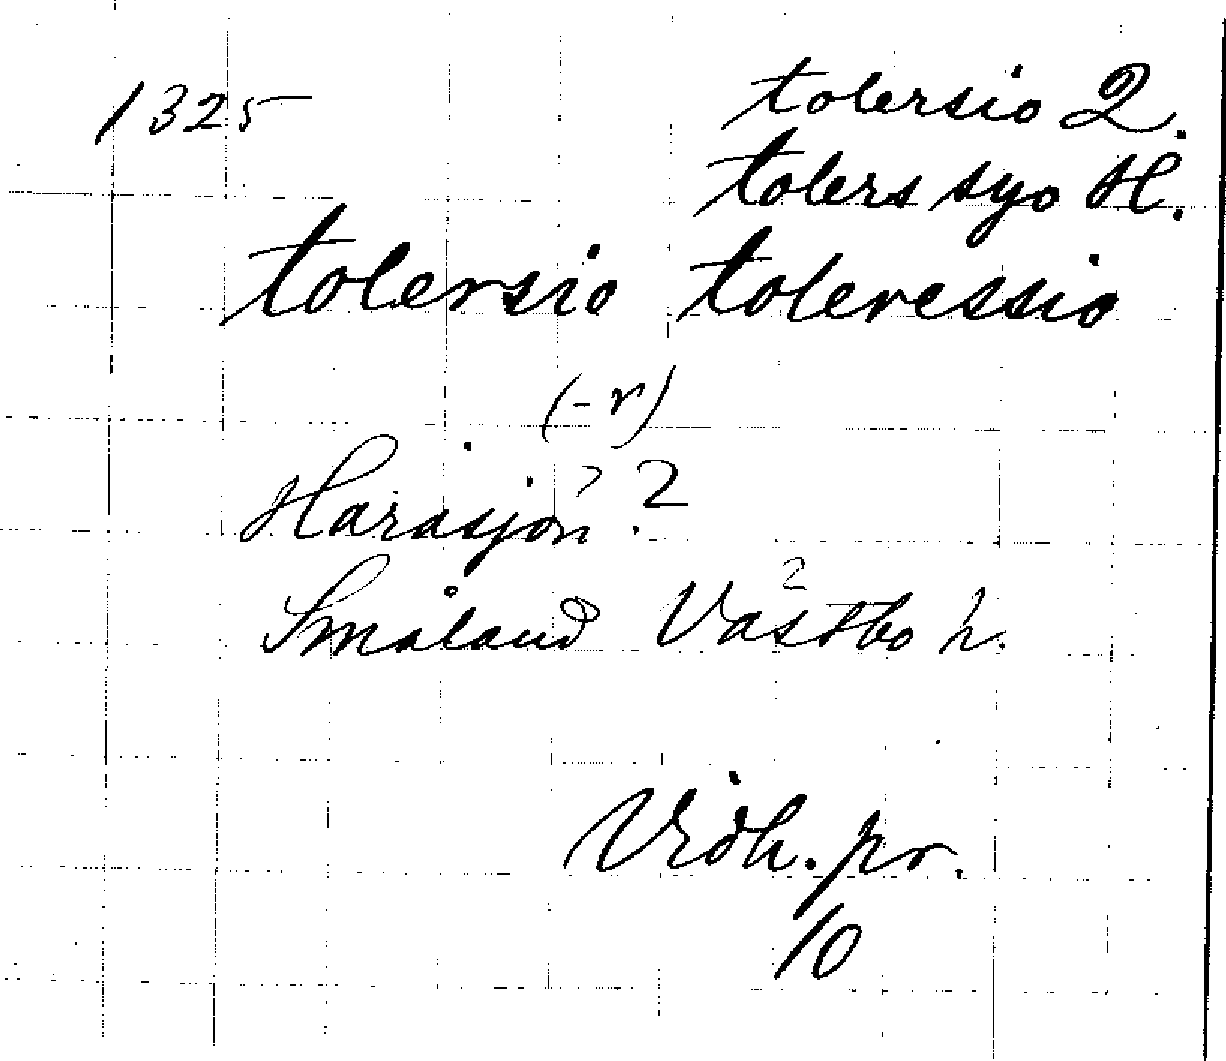 1325
tolersio Q.
tolers syo H.
tolersio toleressio
(-r)
Harasjön? ?
Småland Västbo h.
Vidh. pr.
10